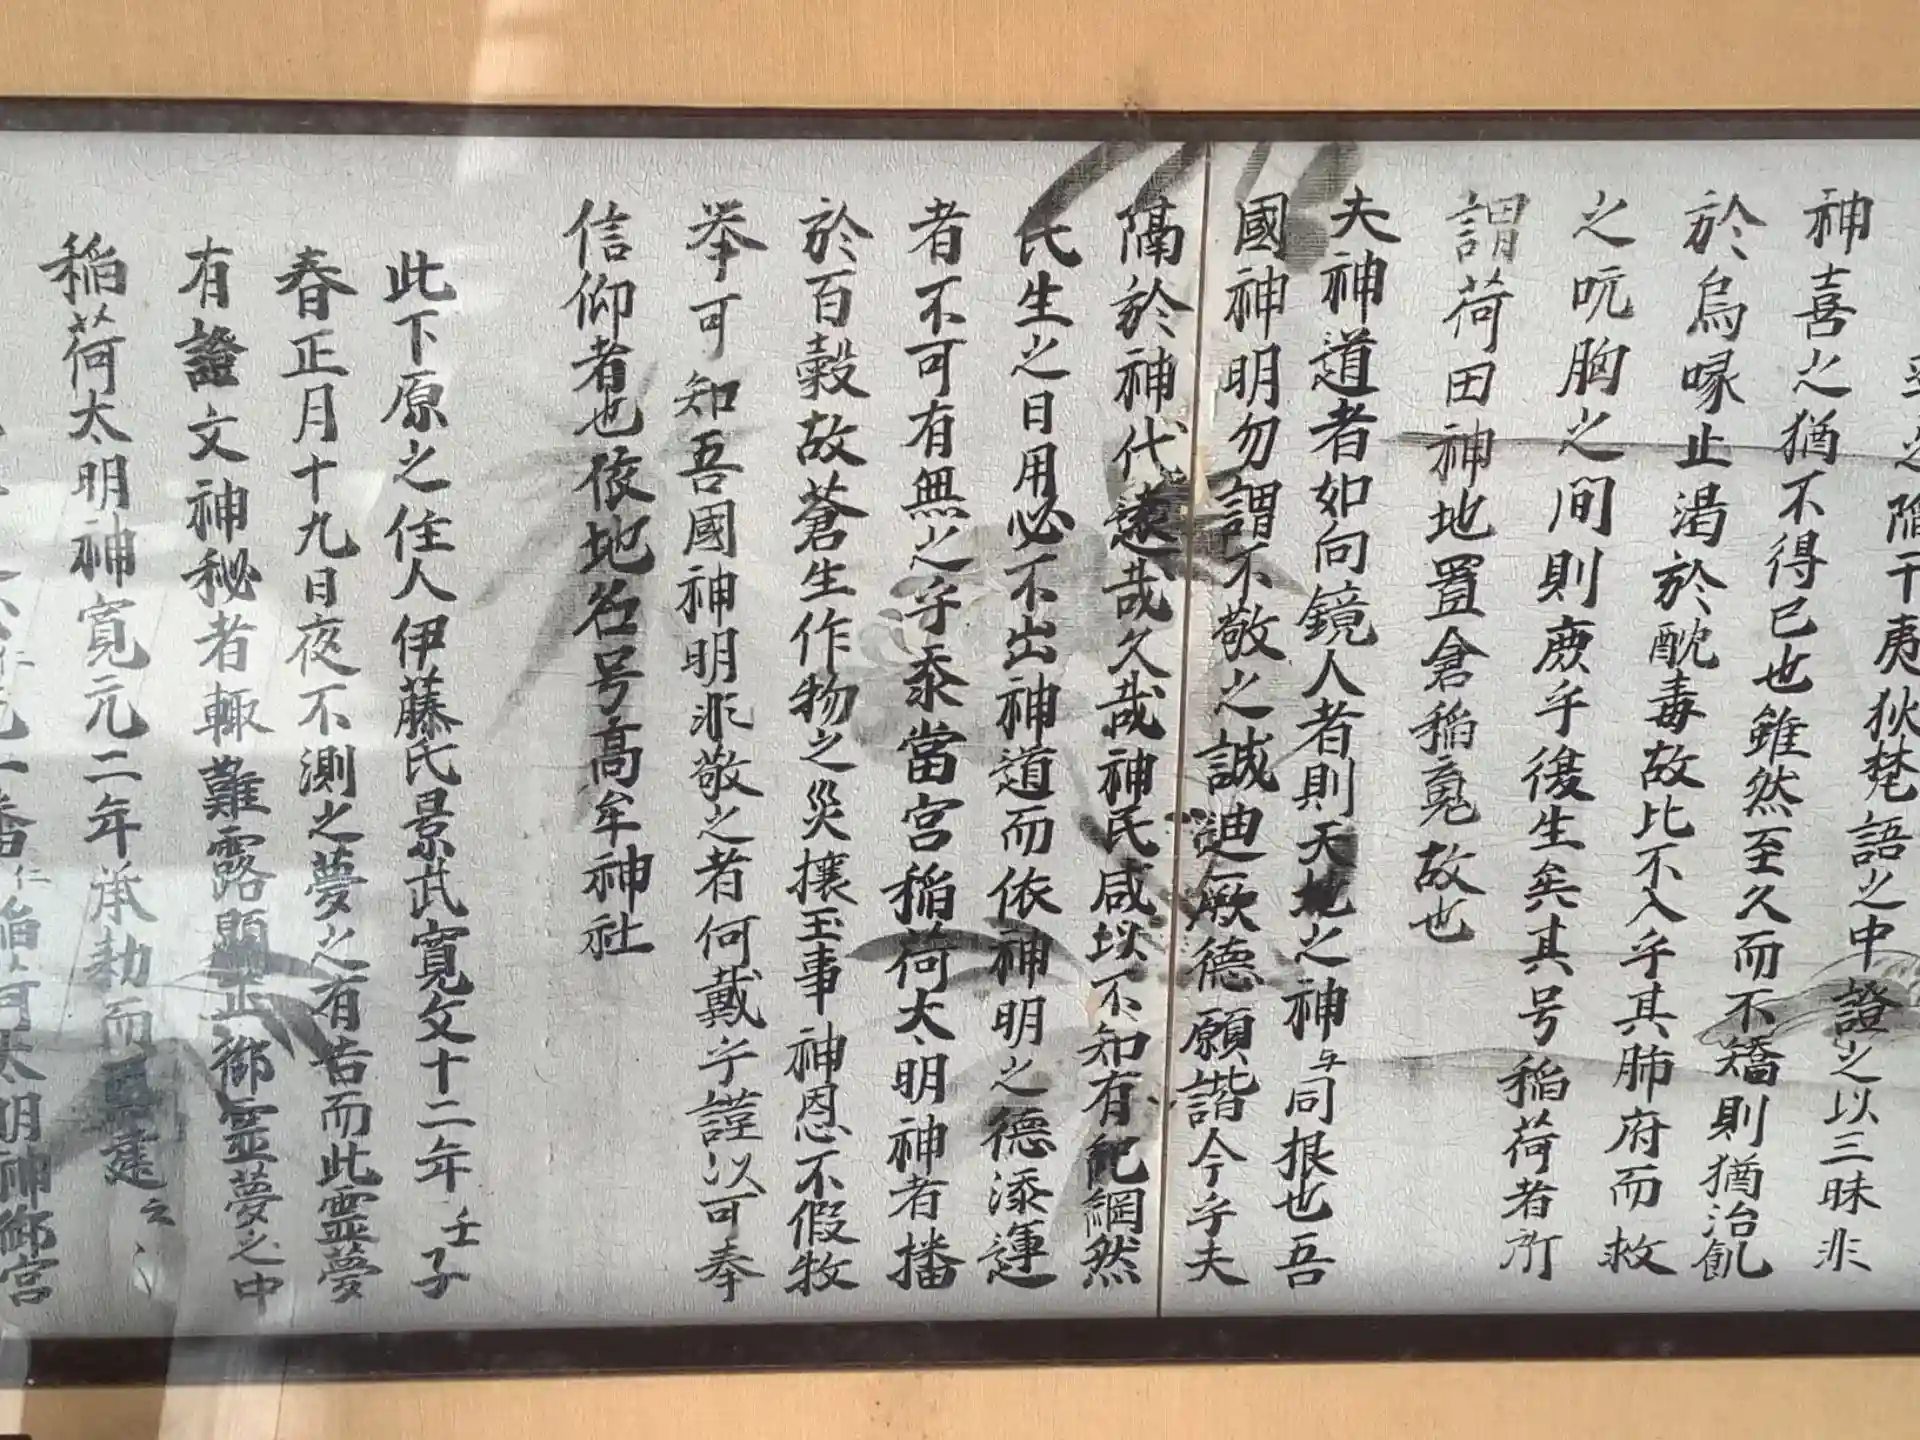 之陥于夷狄梵語之中證之以三昧非
神喜之猶不得已也雖然至久而不矯則猶治飢
於烏喙止渇於酖毒故比不入乎其肺府而救
之吭胸之间則庶乎復生矣其号稲荷者所
謂荷田神地置倉稲魂故也
夫神道者如向鏡人者則天地之神与同根也吾
國神明勿謂不敬之誠迪厥德願諧今乎夫
隔於神代遠哉久哉神民咸以不知有紀綱然
民生之日用必不出神道而依神明之德添運
者不可有無之乎泰當宮稲荷大明神者播
於百穀故蒼生作物之災攘玉事神恩不假牧
举可知吾國神明非敬之者何戴乎謹以可奉
信仰者也依地名号高牟神社
此下原之住人伊藤氏景武寛文十二年壬子
春正月十九日夜不測之夢之有告而此霊夢
有證文神秘者輙難露顯正御霊夢之中
稲荷大明神寛元二年承勅而建之
稲荷太明神御宮